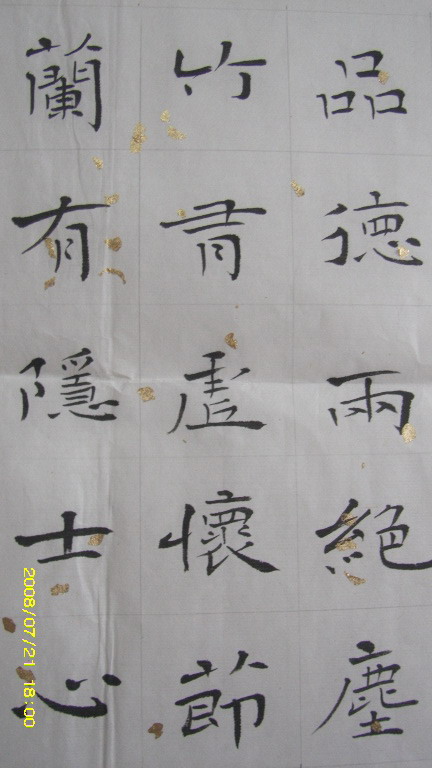 品德兩絕塵
竹虛懷節
蘭有隱士心
2008/07/21 18:00